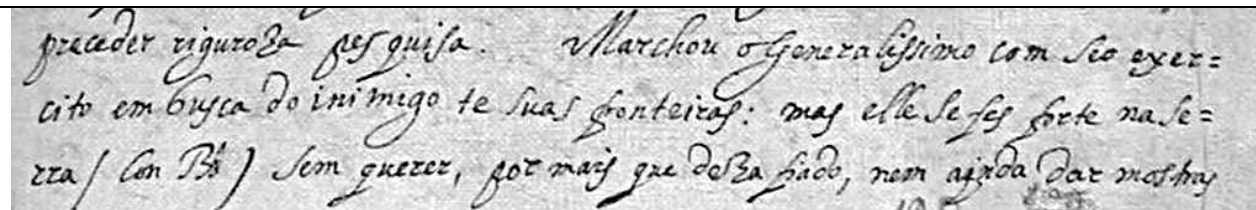 preceder riguroza pesquisa. Marchou o Generalissimo com seo exer=
cito em busca do inimigo te suas fronteiras: mas elle se fes forte na se=
rra / Con Bô ) sem querer, por mais que desza fiado, nem ajnda dar mostras